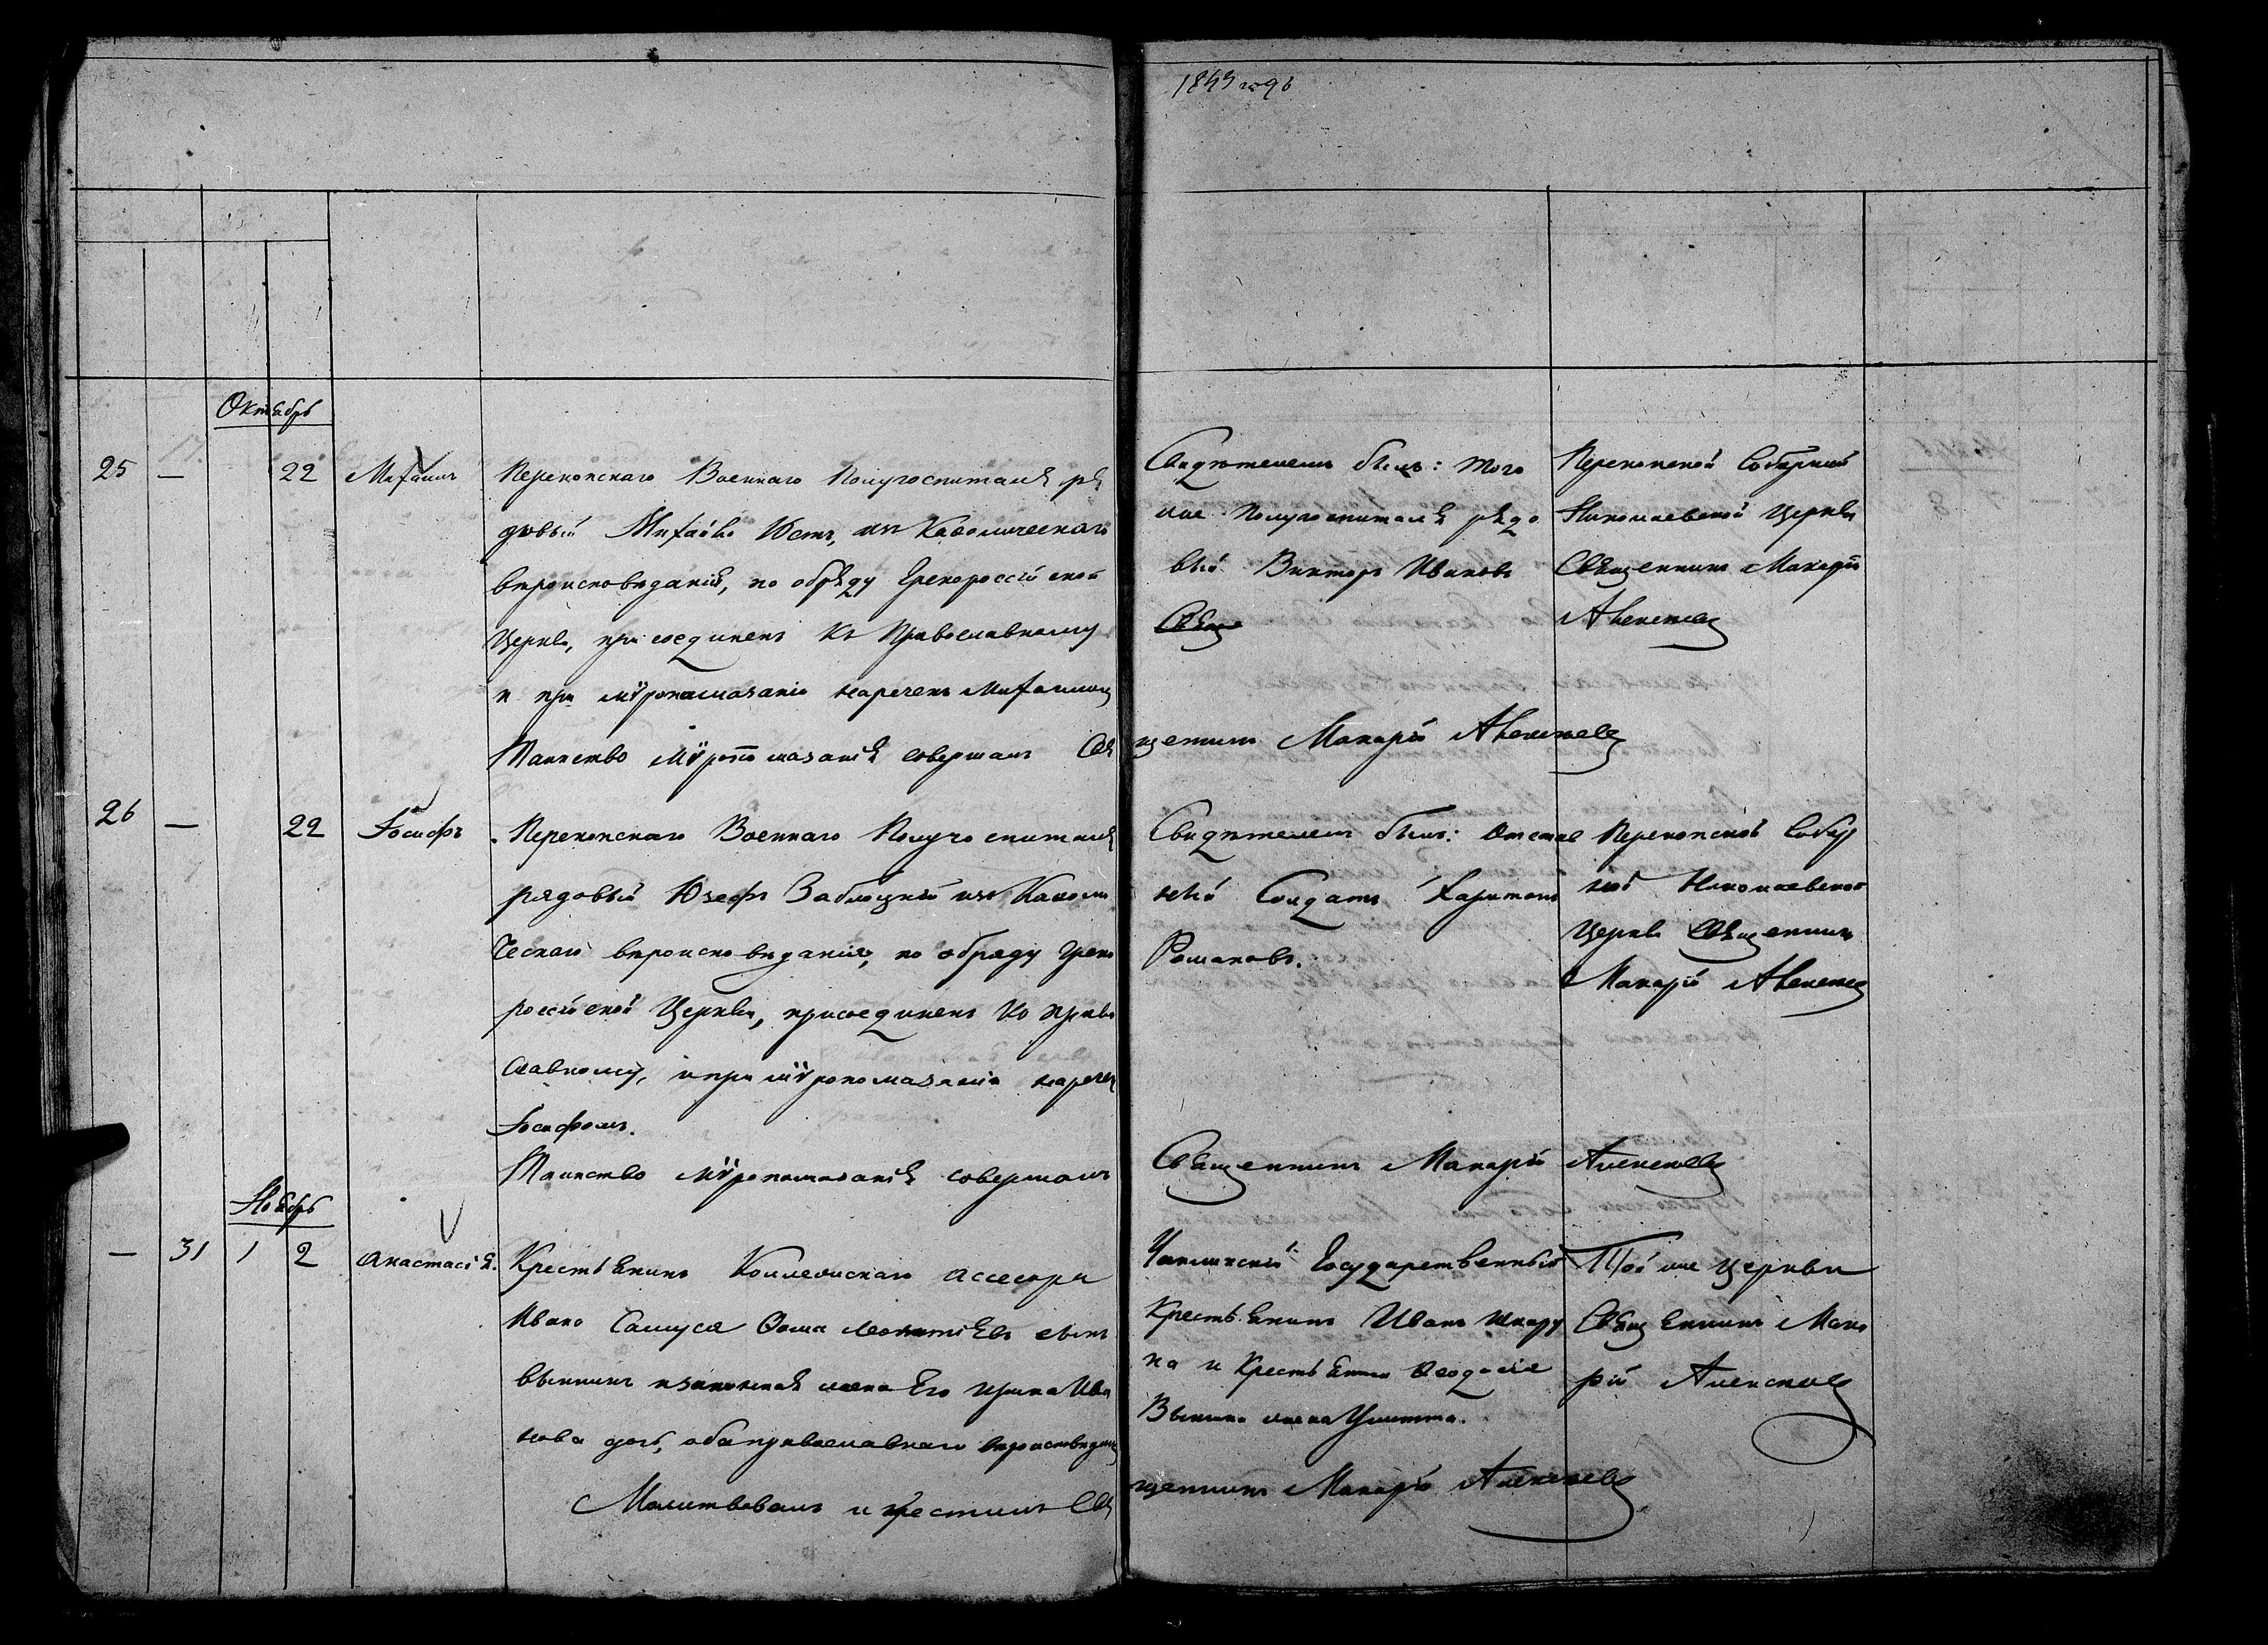 1843 годъ
Октябрь
25 — 22 Михаилъ
Перекопскаго Военнаго Полугоспиталя ря
довый Михайло Юсть, изъ Католическаго
вероисповѣданія, по обряду Грекороссійской
Церкви, присоединенъ къ Православному
и при мѵропомазаніи нареченъ Михаиломъ
Таинство мѵропомазанія совершалъ Свя
щенникъ Макарій Алексѣевъ
Свидѣтелемъ былъ: того
же Полугоспиталя рядо
вый Викторъ Ивановъ
Перекопской Соборной
Николаевской Церкви
Священникъ Макарій
Алексѣевъ
26 — 22 Іосифъ
Перекопскаго Военнаго Полугоспиталя
рядовый Юзефъ Заблоцкій изъ Католи
ческаго вѣроисповѣданія, по обряду греко
россійской Церкви, присоединенъ ко право
славному, и при мѵропомазаніи нареченъ
Іосифомъ.
Таинство мѵропомазанія совершалъ
Священникъ Макарій Алексѣевъ
Свидѣтелемъ былъ: Отстав
ный Солдатъ Харитонъ
Романовъ.
Перекопской Собор
ной Николаевской
Церкви Священникъ
Макарій Алексѣевъ
Ноябрь
— 31 1 2 Анастасія.
Крестьянинъ Коллежскаго Ассесора
Ивана Самуся Ѳома сынъ
и законная жена Его Ирина Ива
нова дочь, оба православнаго вѣроисповѣданія
Молитвовалъ и крестилъ Свя
щенникъ Макарій Алексѣевъ
Государственный
Крестьянинъ Иванъ
и Крестьянина Ѳеодосія
жена
Той же Церкви
Священникъ Мака
рій Алексѣевъ